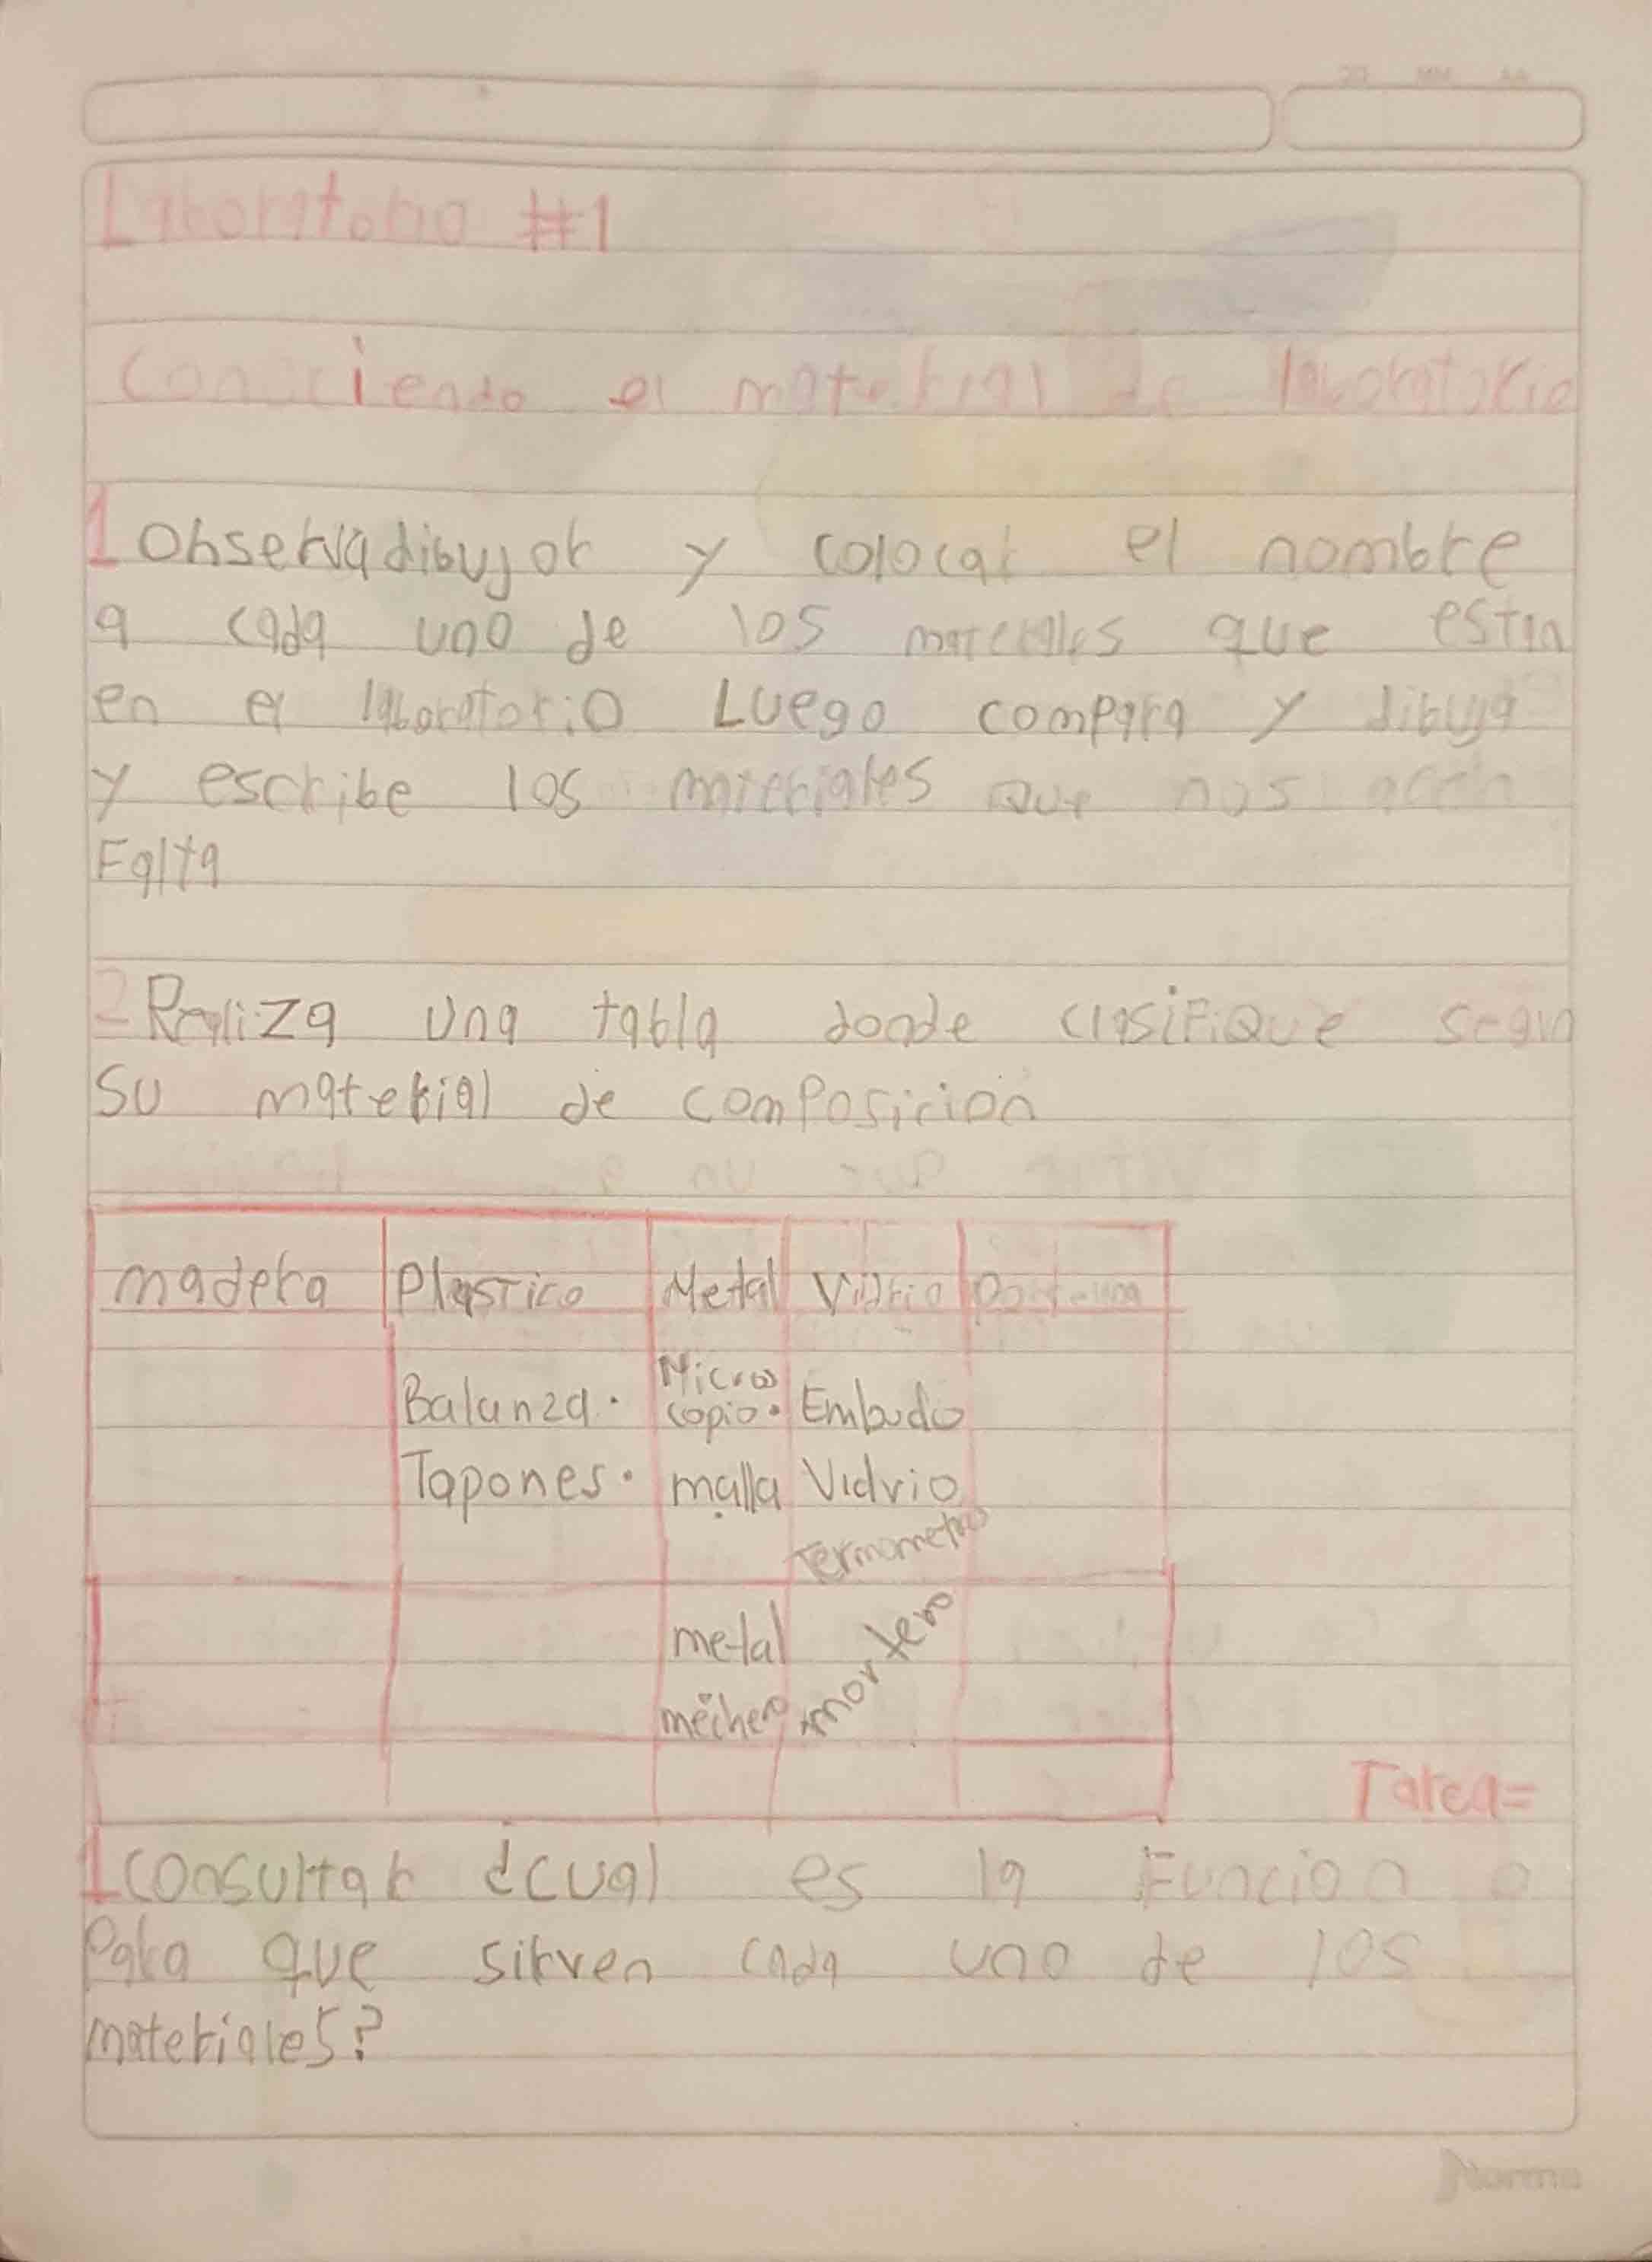 Laboratorio #1
Conociendo el material de laboratorio
1 Observa dibujor y colocar el nombre
a cada uno de los materiales que estan
en el laboratorio Luego compara y dibuja
y escribe los materiales que nos acen
Falta
2 Realiza una tabla donde clasifique segun
su material de composicion
madera Plastico Metal Vidrio
Balanza. Microscopio. Embudo
Tapones. malla Vidrio
Termometro
metal mortero
mechero
Tarea=
1 consultar ¿cual es la Funcion o
Para que sirven cada uno de los
materiales?
Norma